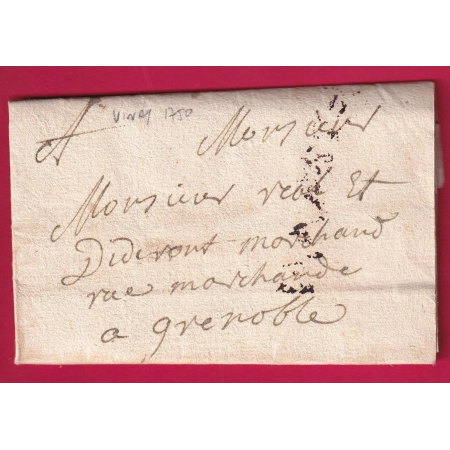 VINAY 1750
A Monsieur
Monsieur real Et
Dideront marchand
rue marchande
a grenoble